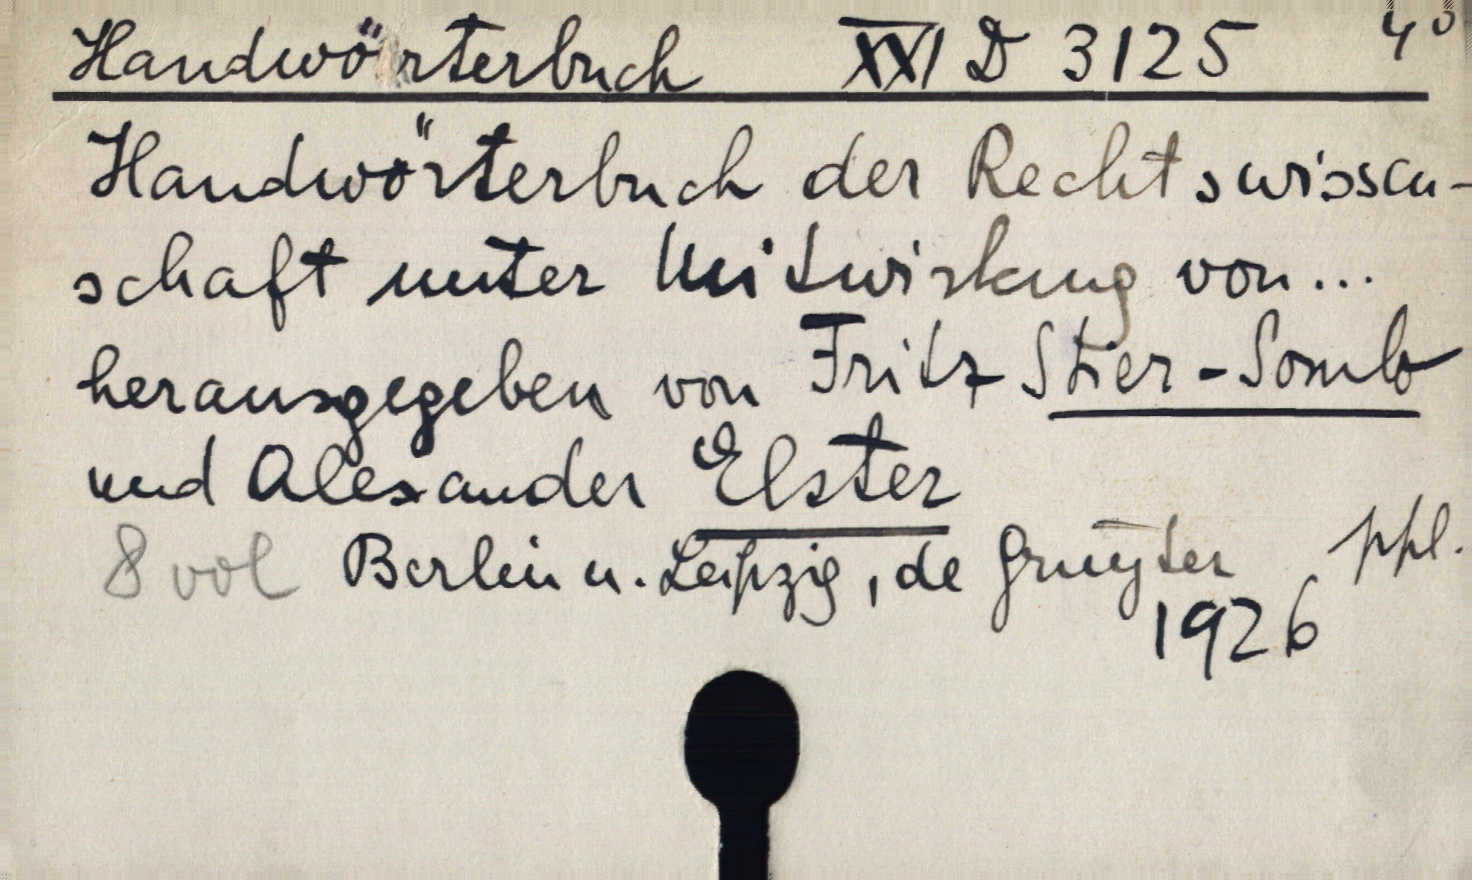 Handwörterbuch XXI D 3125 4°
Handwörterbuch der Rechtswissen-
schaft unter Mitwirkung von...
herausgegeben von Fritz Stier-Somlo
und Alexander Elster
8 vol Berlin u. Leipzig, de Gruyter ppl.
1926